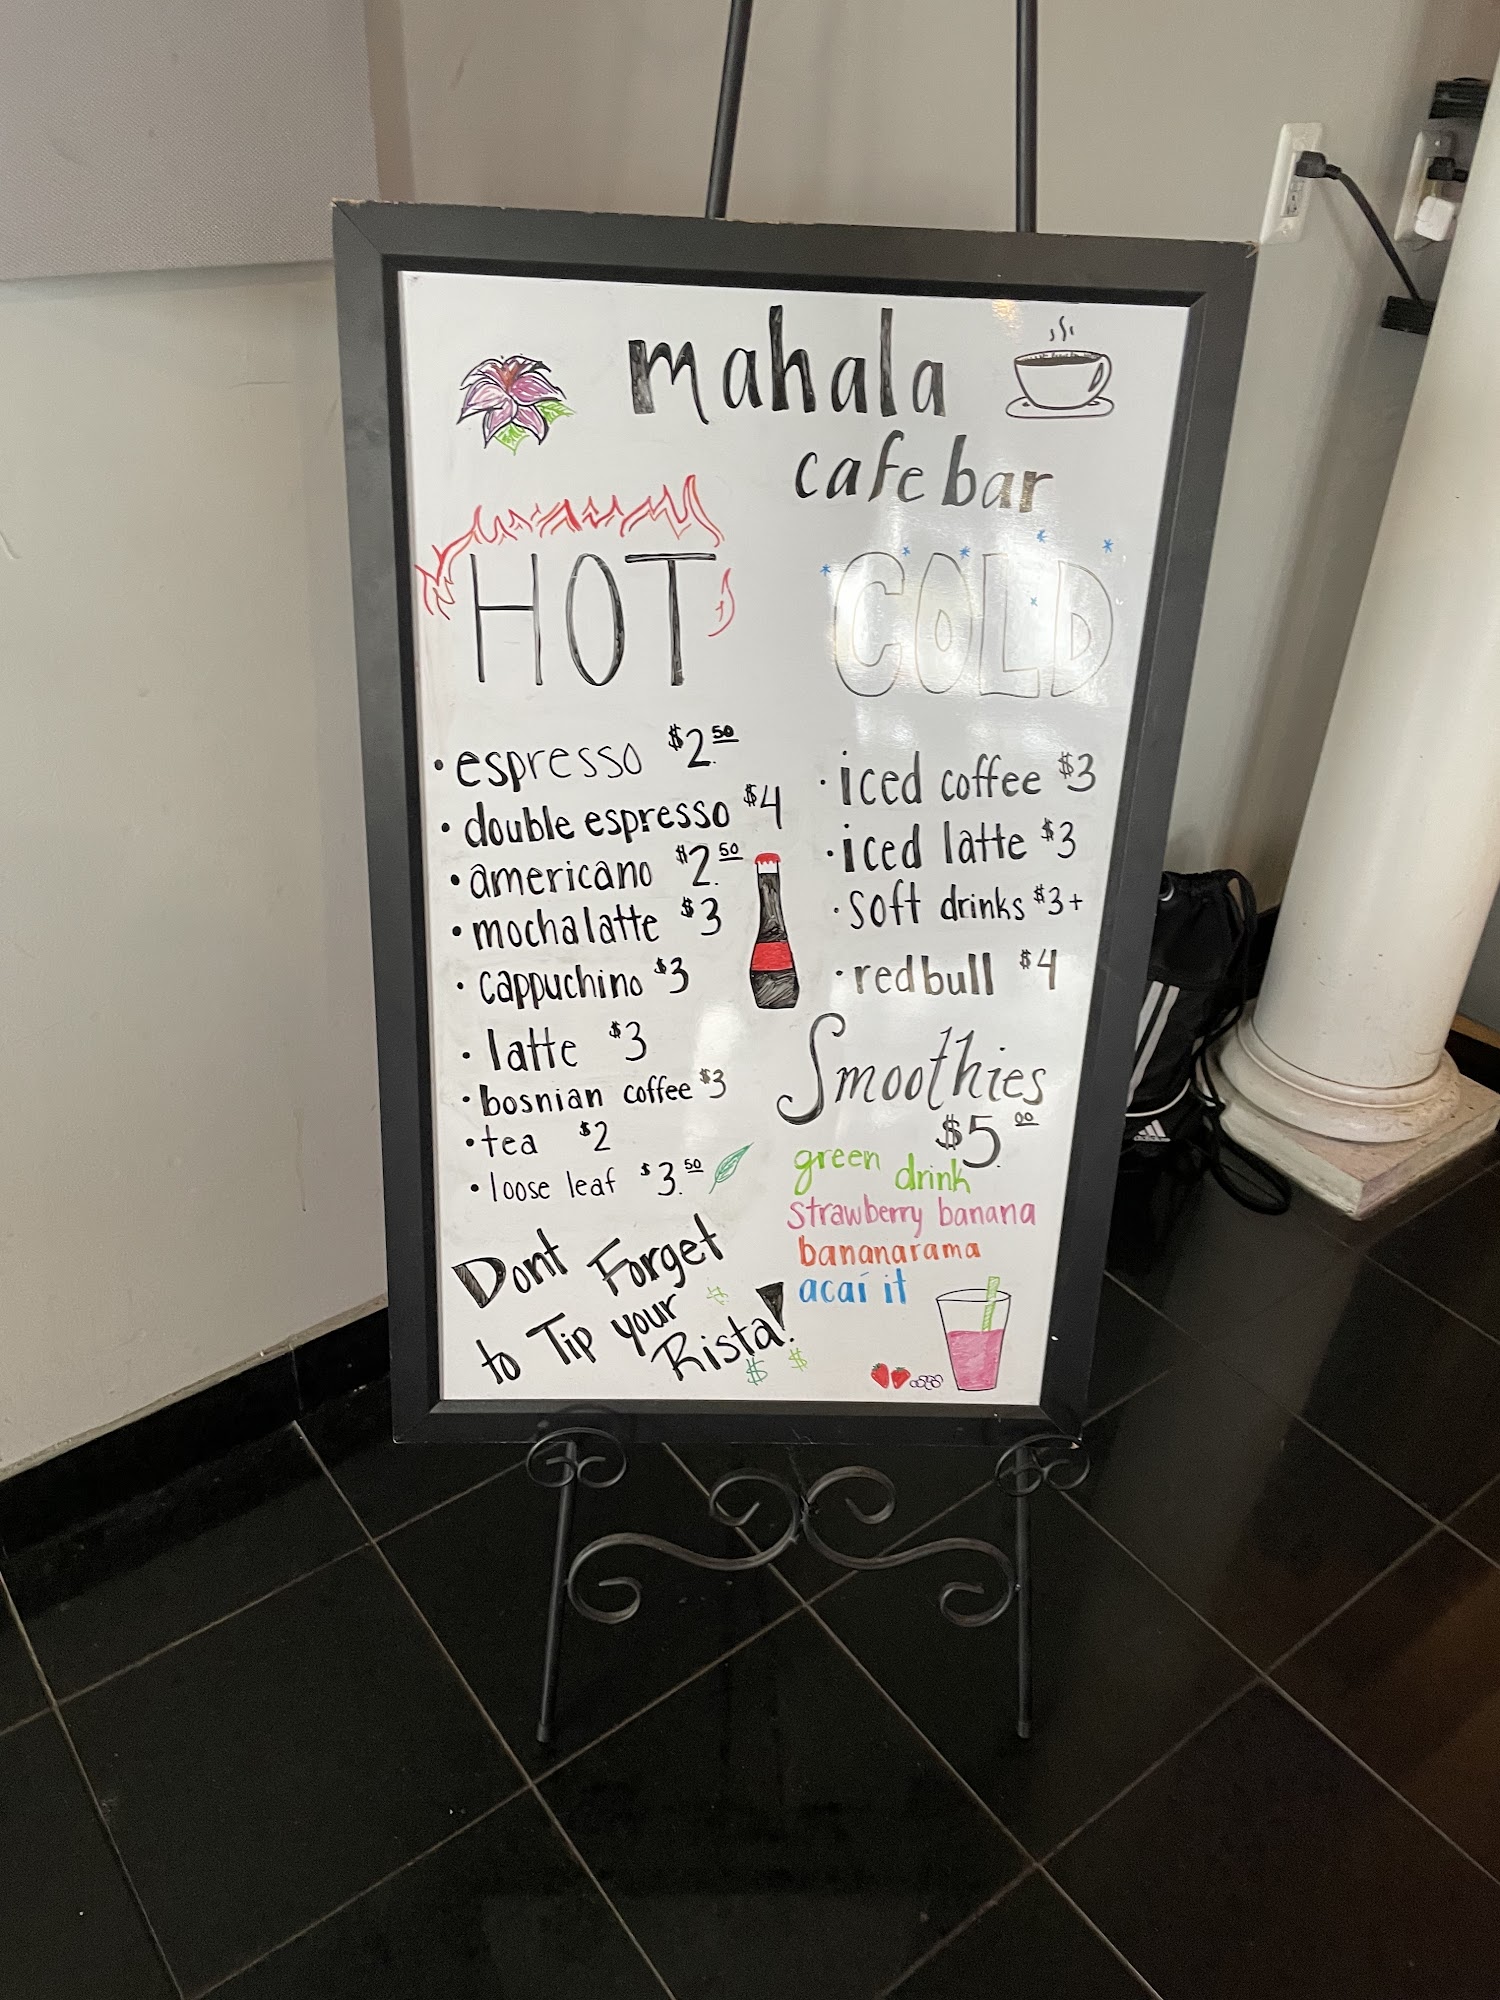 mahala
cafe bar
HOT
• espresso $2.50
• double espresso $4
• americano $2.50
• mocha latte $3
• cappuchino $3
• latte $3
• bosnian coffee $3
• tea $2
• loose leaf $3.50
Dont Forget
to Tip your
Rista!
$
$ $
COLD
• iced coffee $3
• iced latte $3
• soft drinks $3+
• redbull $4
Smoothies
$5.00
green drink
strawberry banana
bananarama
acai it
adidas